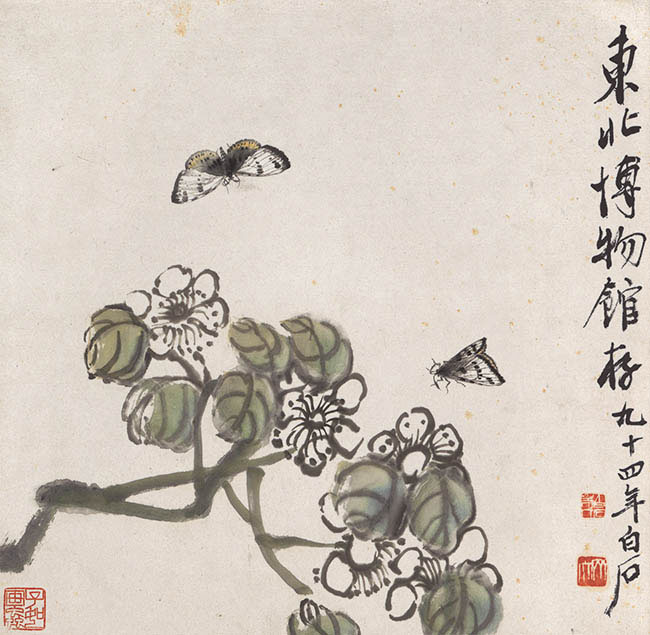 東北博物館存九十四年白石